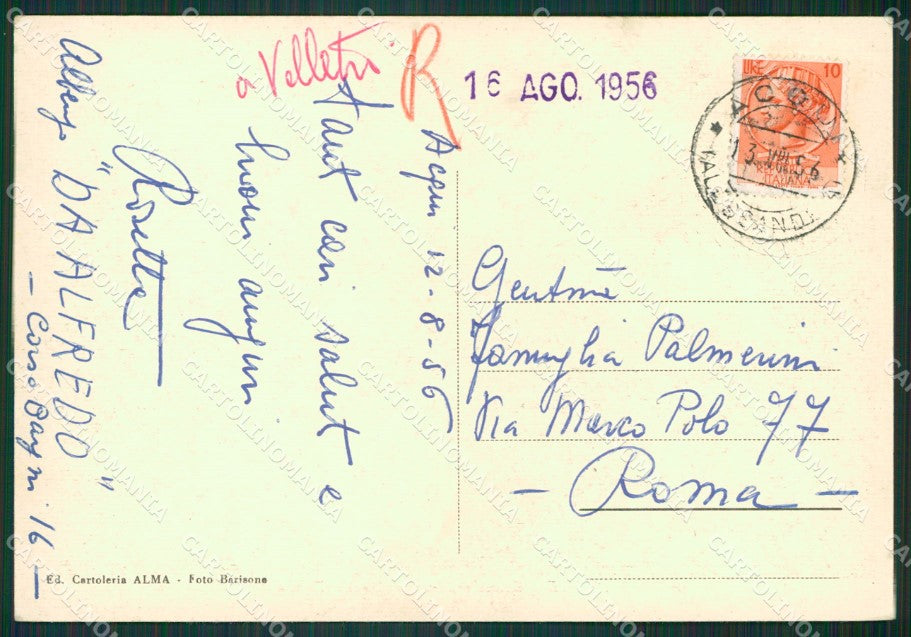 a Velletri
R
16 AGO. 1956
LIRE 10
REPUBBLICA
ITALIANA
ACQUI
13 VIII 56
(ALESSANDRIA)
Acqui 12-8-56
Tant cari salut e
buoni auguri
Rosetta
Albergo "DA ALFREDO"
- Corso Bagni 16 -
Gentma
Famiglia Palmerini
Via Marco Polo 77
- Roma -
Ed. Cartoleria ALMA - Foto Barisone
CARTOLINOMANIA